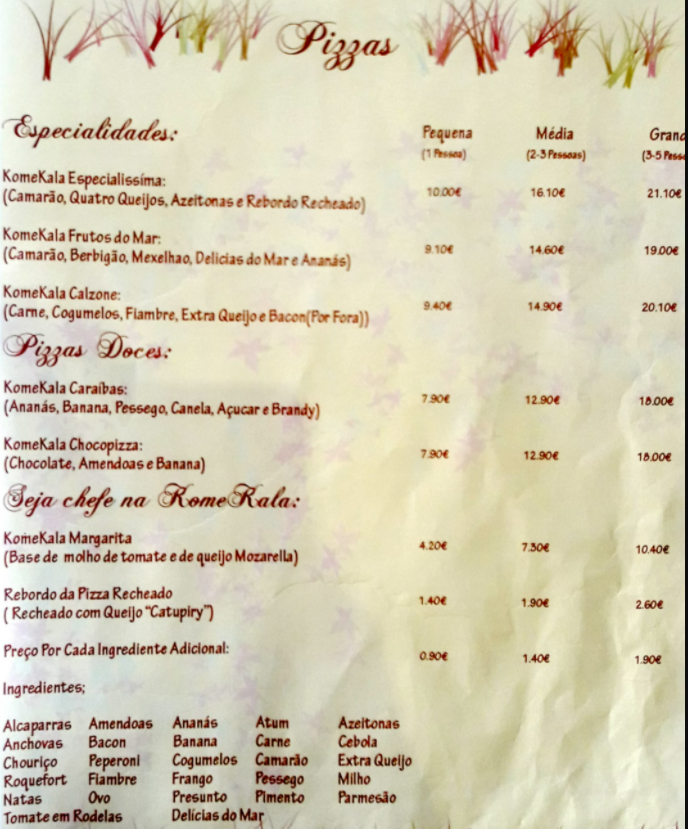 Pizzas
Especialidades: Pequena Média Grand
(1 Pessoa) (2-3 Pessoas) (3-5 Pesso
KomeKala Especialissíma:
(Camarão, Quatro Queijos, Azeitonas e Rebordo Recheado) 10.00€ 16.10€ 21.10€
KomeKala Frutos do Mar:
(Camarão, Berbigão, Mexelhao, Delicias do Mar e Ananás) 9.10€ 14.60€ 19.00€
KomeKala Calzone:
(Carne, Cogumelos, Fiambre, Extra Queijo e Bacon(Por Fora)) 9.40€ 14.90€ 20.10€
Pizzas Doces:
KomeKala Caraíbas:
(Ananás, Banana, Pessego, Canela, Açucar e Brandy) 7.90€ 12.90€ 18.00€
KomeKala Chocopizza:
(Chocolate, Amendoas e Banana) 7.90€ 12.90€ 18.00€
Seja chefe na KomeKala:
KomeKala Margarita
(Base de molho de tomate e de queijo Mozarella) 4.20€ 7.30€ 10.40€
Rebordo da Pizza Recheado
( Recheado com Queijo “Catupiry”) 1.40€ 1.90€ 2.60€
Preço Por Cada Ingrediente Adicional: 0.90€ 1.40€ 1.90€
Ingredientes;
Alcaparras Amendoas Ananás Atum Azeitonas
Anchovas Bacon Banana Carne Cebola
Chouriço Peperoni Cogumelos Camarão Extra Queijo
Roquefort Fiambre Frango Pessego Milho
Natas Ovo Presunto Pimento Parmesão
Tomate em Rodelas Delícias do Mar